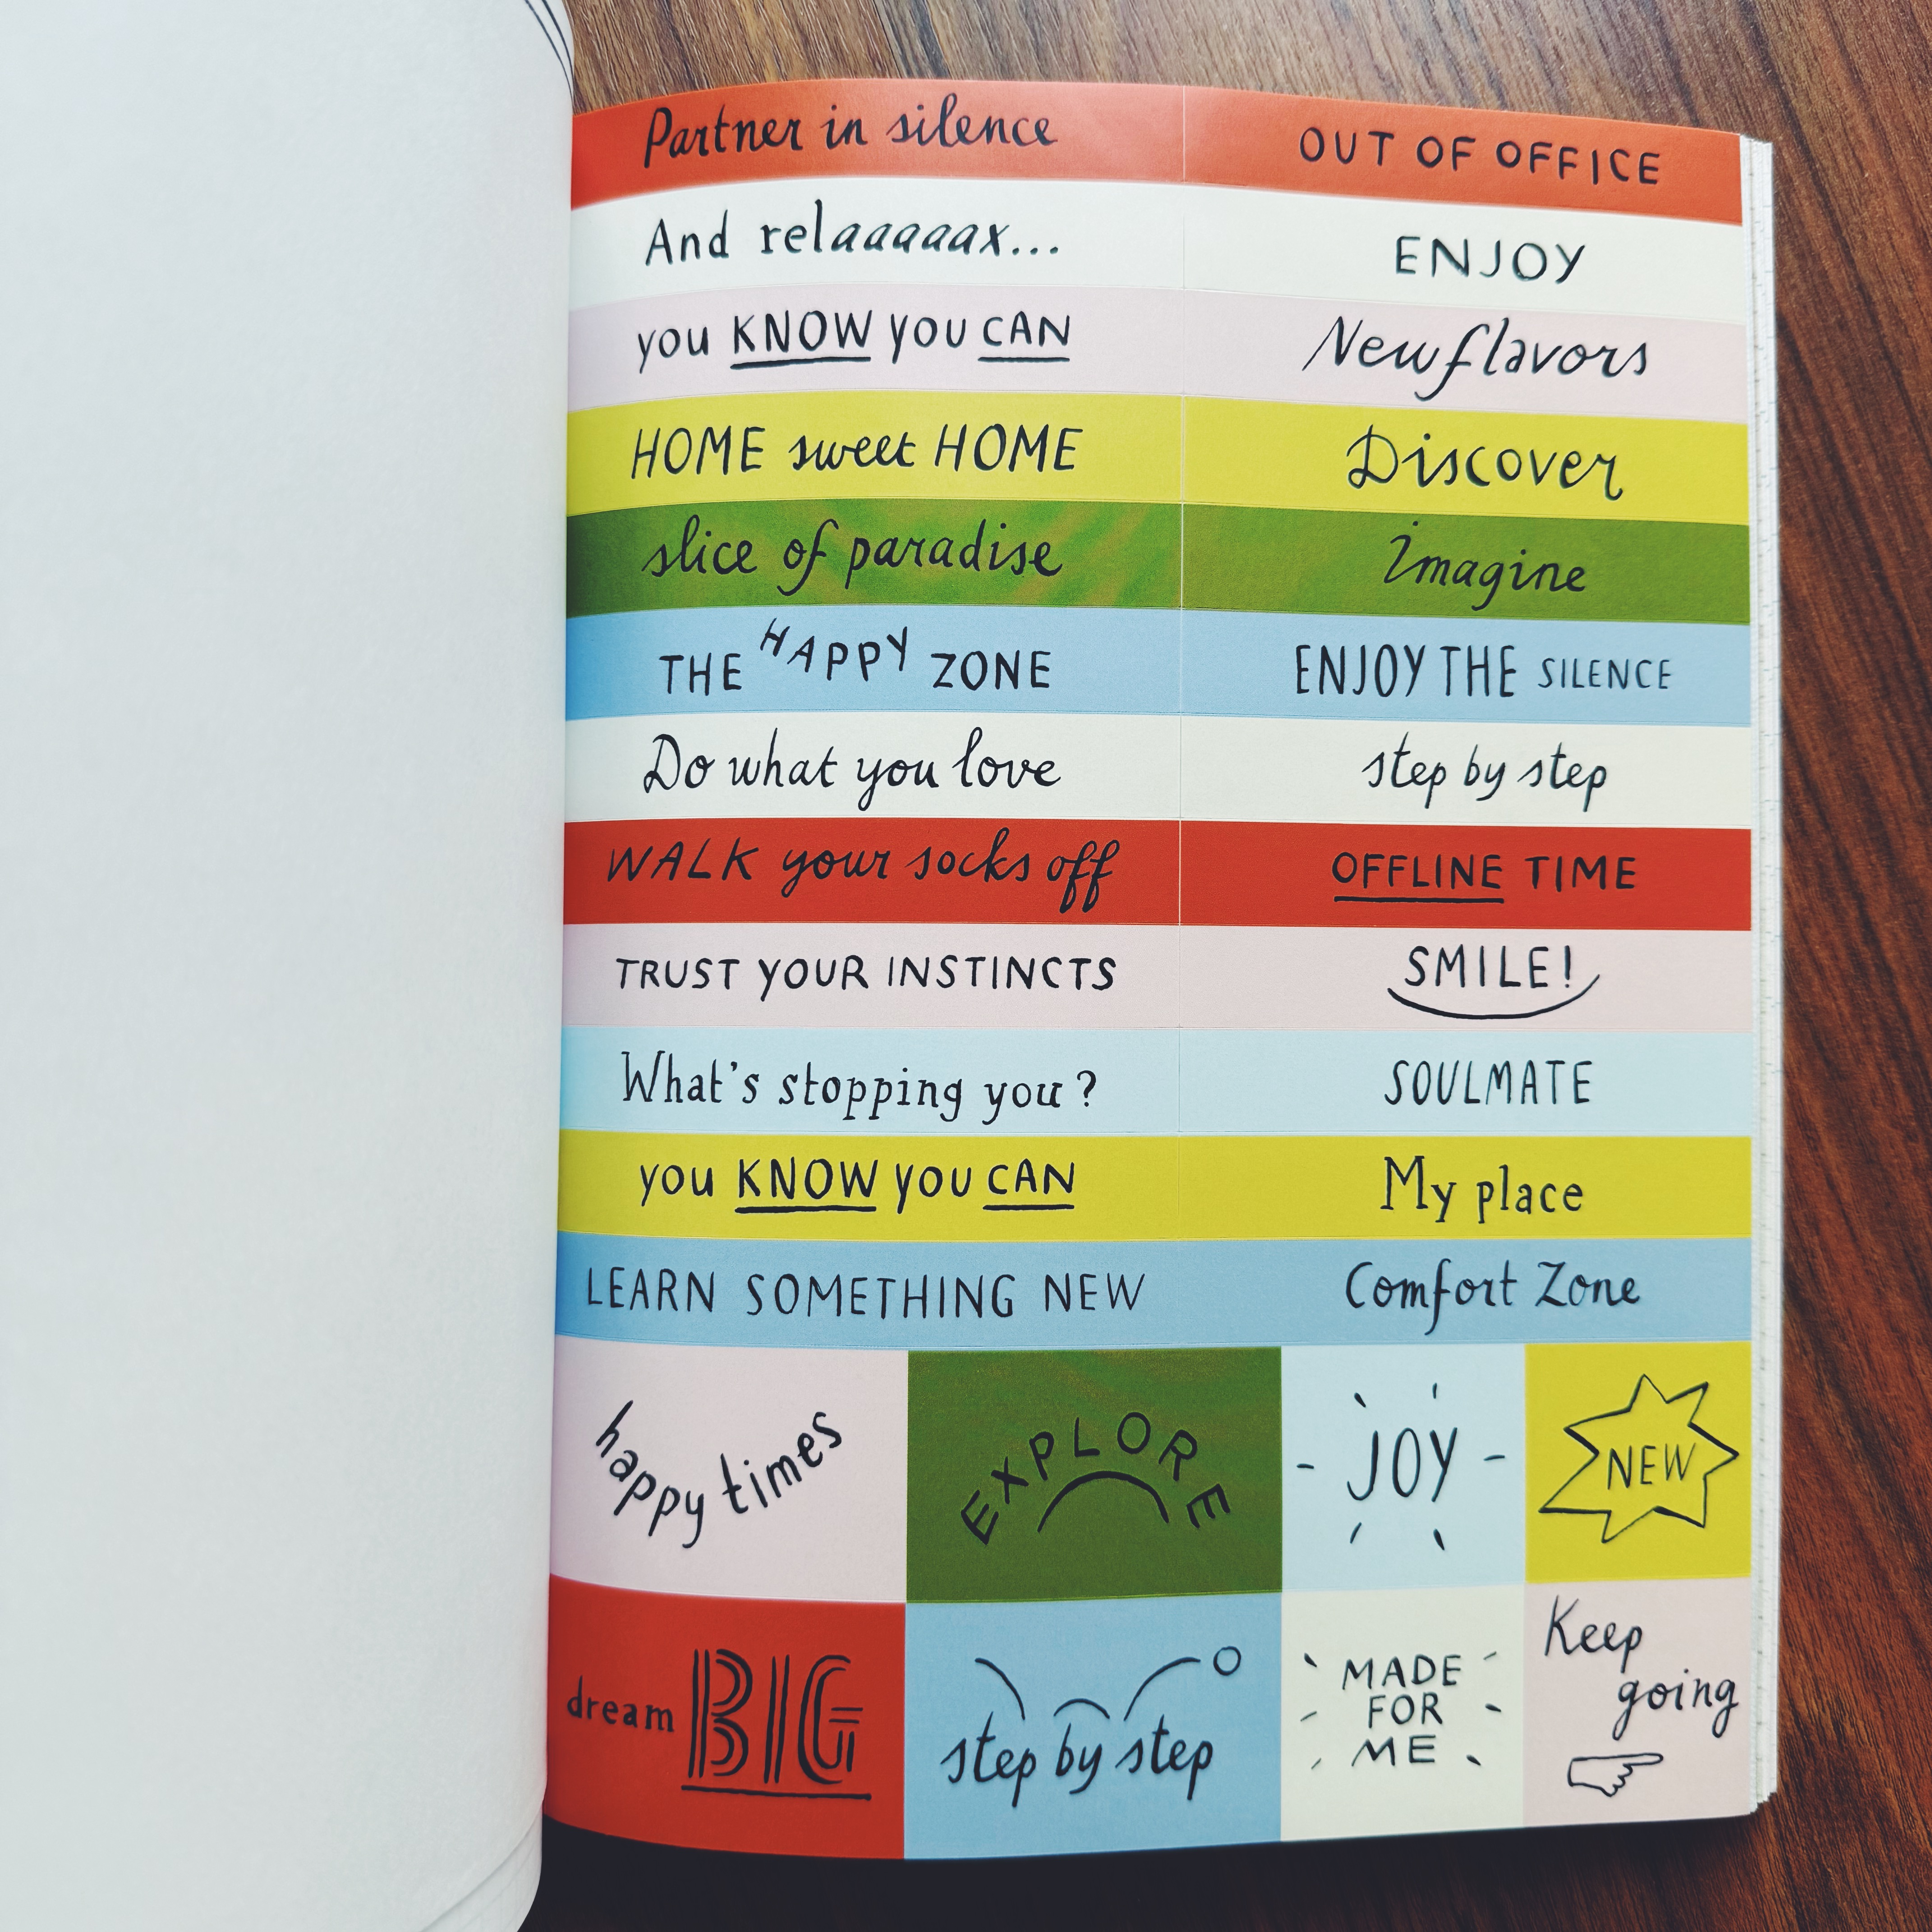 Partner in silence
OUT OF OFFICE
And relaaaaax...
ENJOY
you KNOW you CAN
New flavors
HOME sweet HOME
Discover
slice of paradise
Imagine
THE HAPPY ZONE
ENJOY THE SILENCE
Do what you love
step by step
WALK your socks off
OFFLINE TIME
TRUST YOUR INSTINCTS
SMILE!
What's stopping you?
SOULMATE
you KNOW you CAN
My place
LEARN SOMETHING NEW
Comfort Zone
happy times
EXPLORE
JOY
NEW
dream BIG
step by step
MADE
FOR
ME
Keep
going